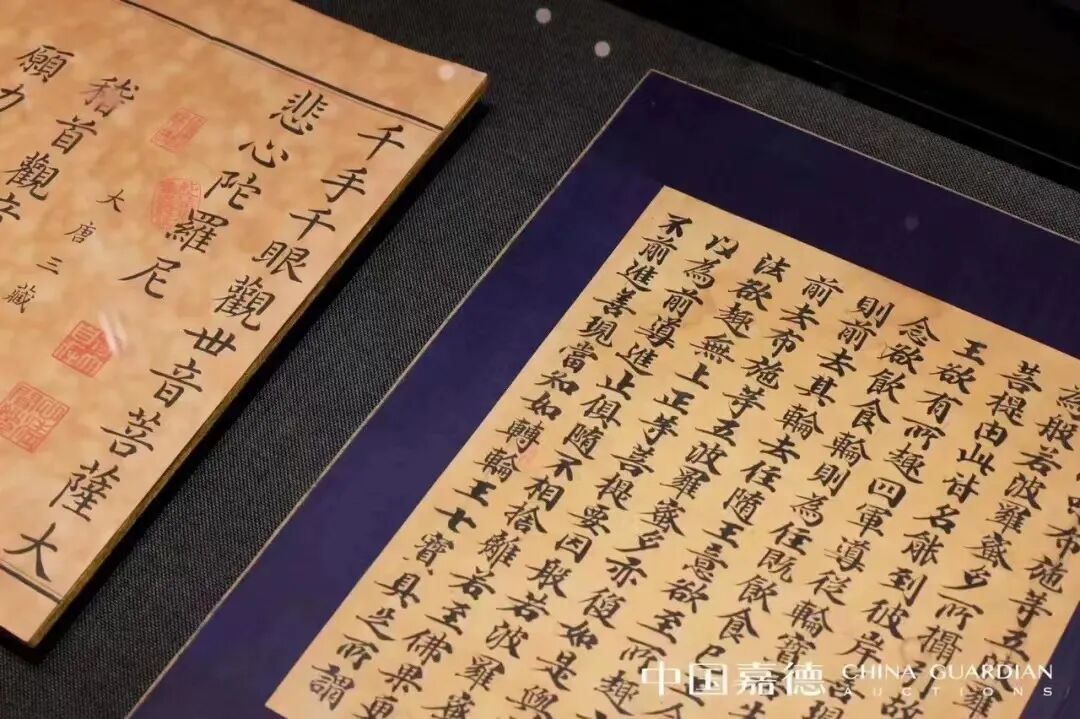 千手千眼觀世音菩薩大
悲心陀羅尼
大唐三藏
稽首觀音
願力
布施等五波羅
為般若波羅蜜多所攝
菩提由此皆名能到彼岸
王欲有所趣四軍導從輪寶
念欲飲食輪則為住既飲食已
則前去其輪去住隨王意欲至所趣
前去布施等五波羅蜜多亦復如是與
法欲趣無上正等菩提要因般若波羅蜜
以為前導進止俱隨不相捨離若至佛果更
不前進善現當知如轉輪王七寶具足所謂
中国嘉德 CHINA GUARDIAN
AUCTIONS